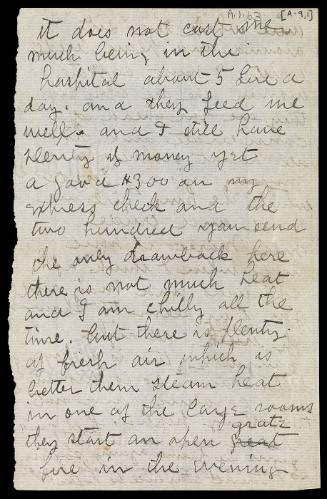 A.1.63 [A-9,1]
it does not cost me
much being in the
hospital about 5 lire a
day. and they feed me
well. and I still have
plenty of money yet
a good $300 on my
express check and the
two hundred you send
the only drawback here
there is not much heat
and I am chilly all the
time. but there is plenty
of fresh air which is
better then steam heat
in one of the large rooms
grate
they start an open
fire in the evening